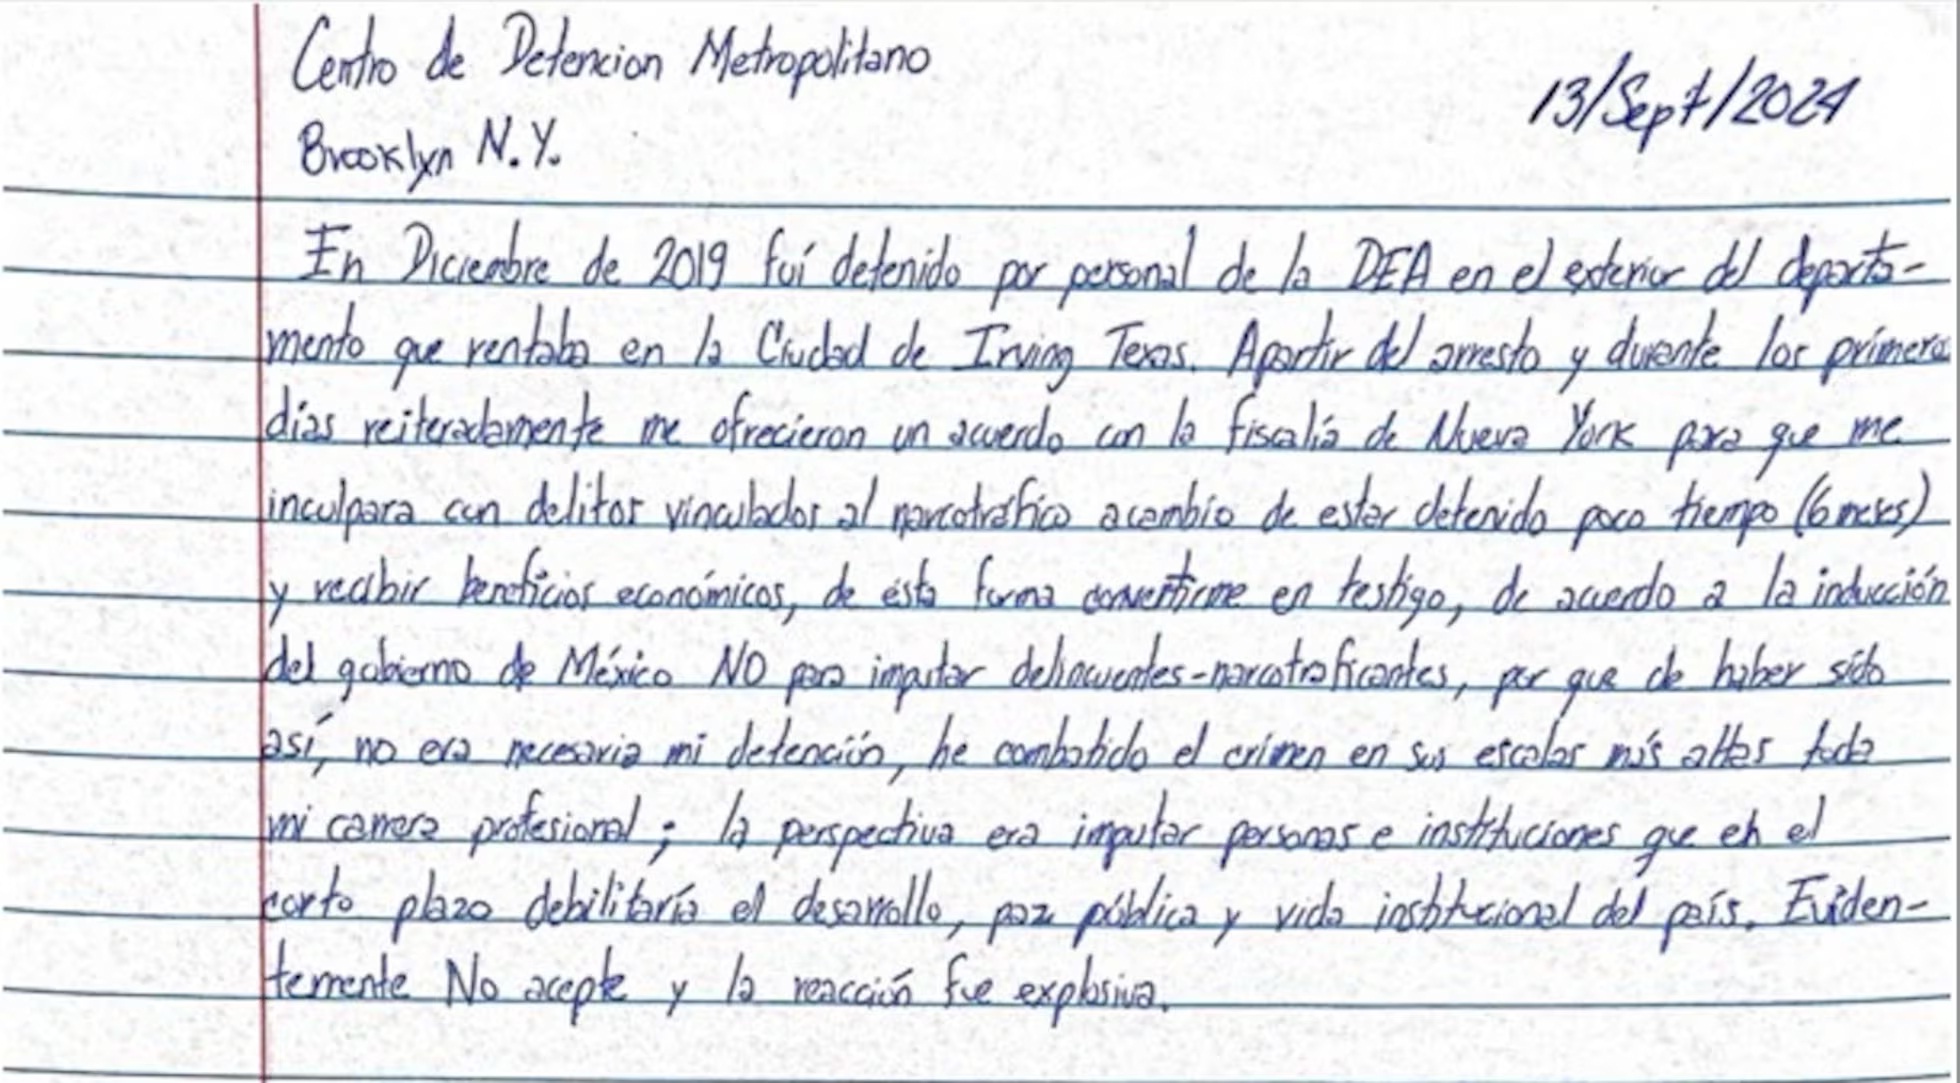 Centro de Detencion Metropolitano
13/Sept/2024
Brooklyn N.Y.
En Diciembre de 2019 fuí detenido por personal de la DEA en el exterior del departa-
mento que rentaba en la Ciudad de Irving Texas. Apartir del arresto y durante los primeros
días reiteradamente me ofrecieron un acuerdo con la fiscalía de Nueva York para que me
inculpara con delitos vinculados al narcotráfico acambio de estar detenido poco tiempo (6 meses)
y recibir beneficios económicos, de ésta forma convertirme en testigo, de acuerdo a la inducción
del gobierno de México NO para imputar delincuentes-narcotraficantes, por que de haber sido
así, no era necesaria mi detención, he combatido el crimen en sus escalas más altas toda
mi carrera profesional; la perspectiva era imputar personas e instituciones que en el
corto plazo debilitaría el desarrollo, paz pública y vida institucional del país. Eviden-
temente No acepte y la reacción fue explosiva.